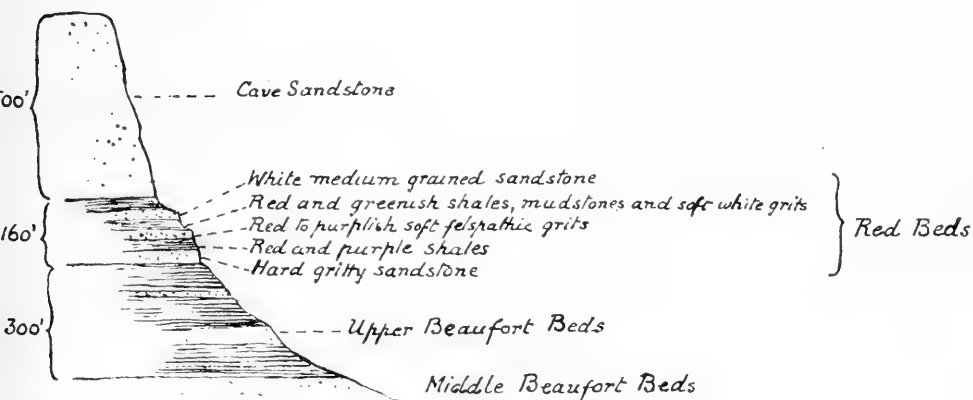 Cave Sandstone
White medium grained sandstone
Red and greenish shales, mudstones and soft white grits
Red to purplish soft felspathic grits
160'
Red Beds
Red and purple shales
Hard gritty sandstone
300'
Upper Beaufort Beds
Middle Beaufort Beds